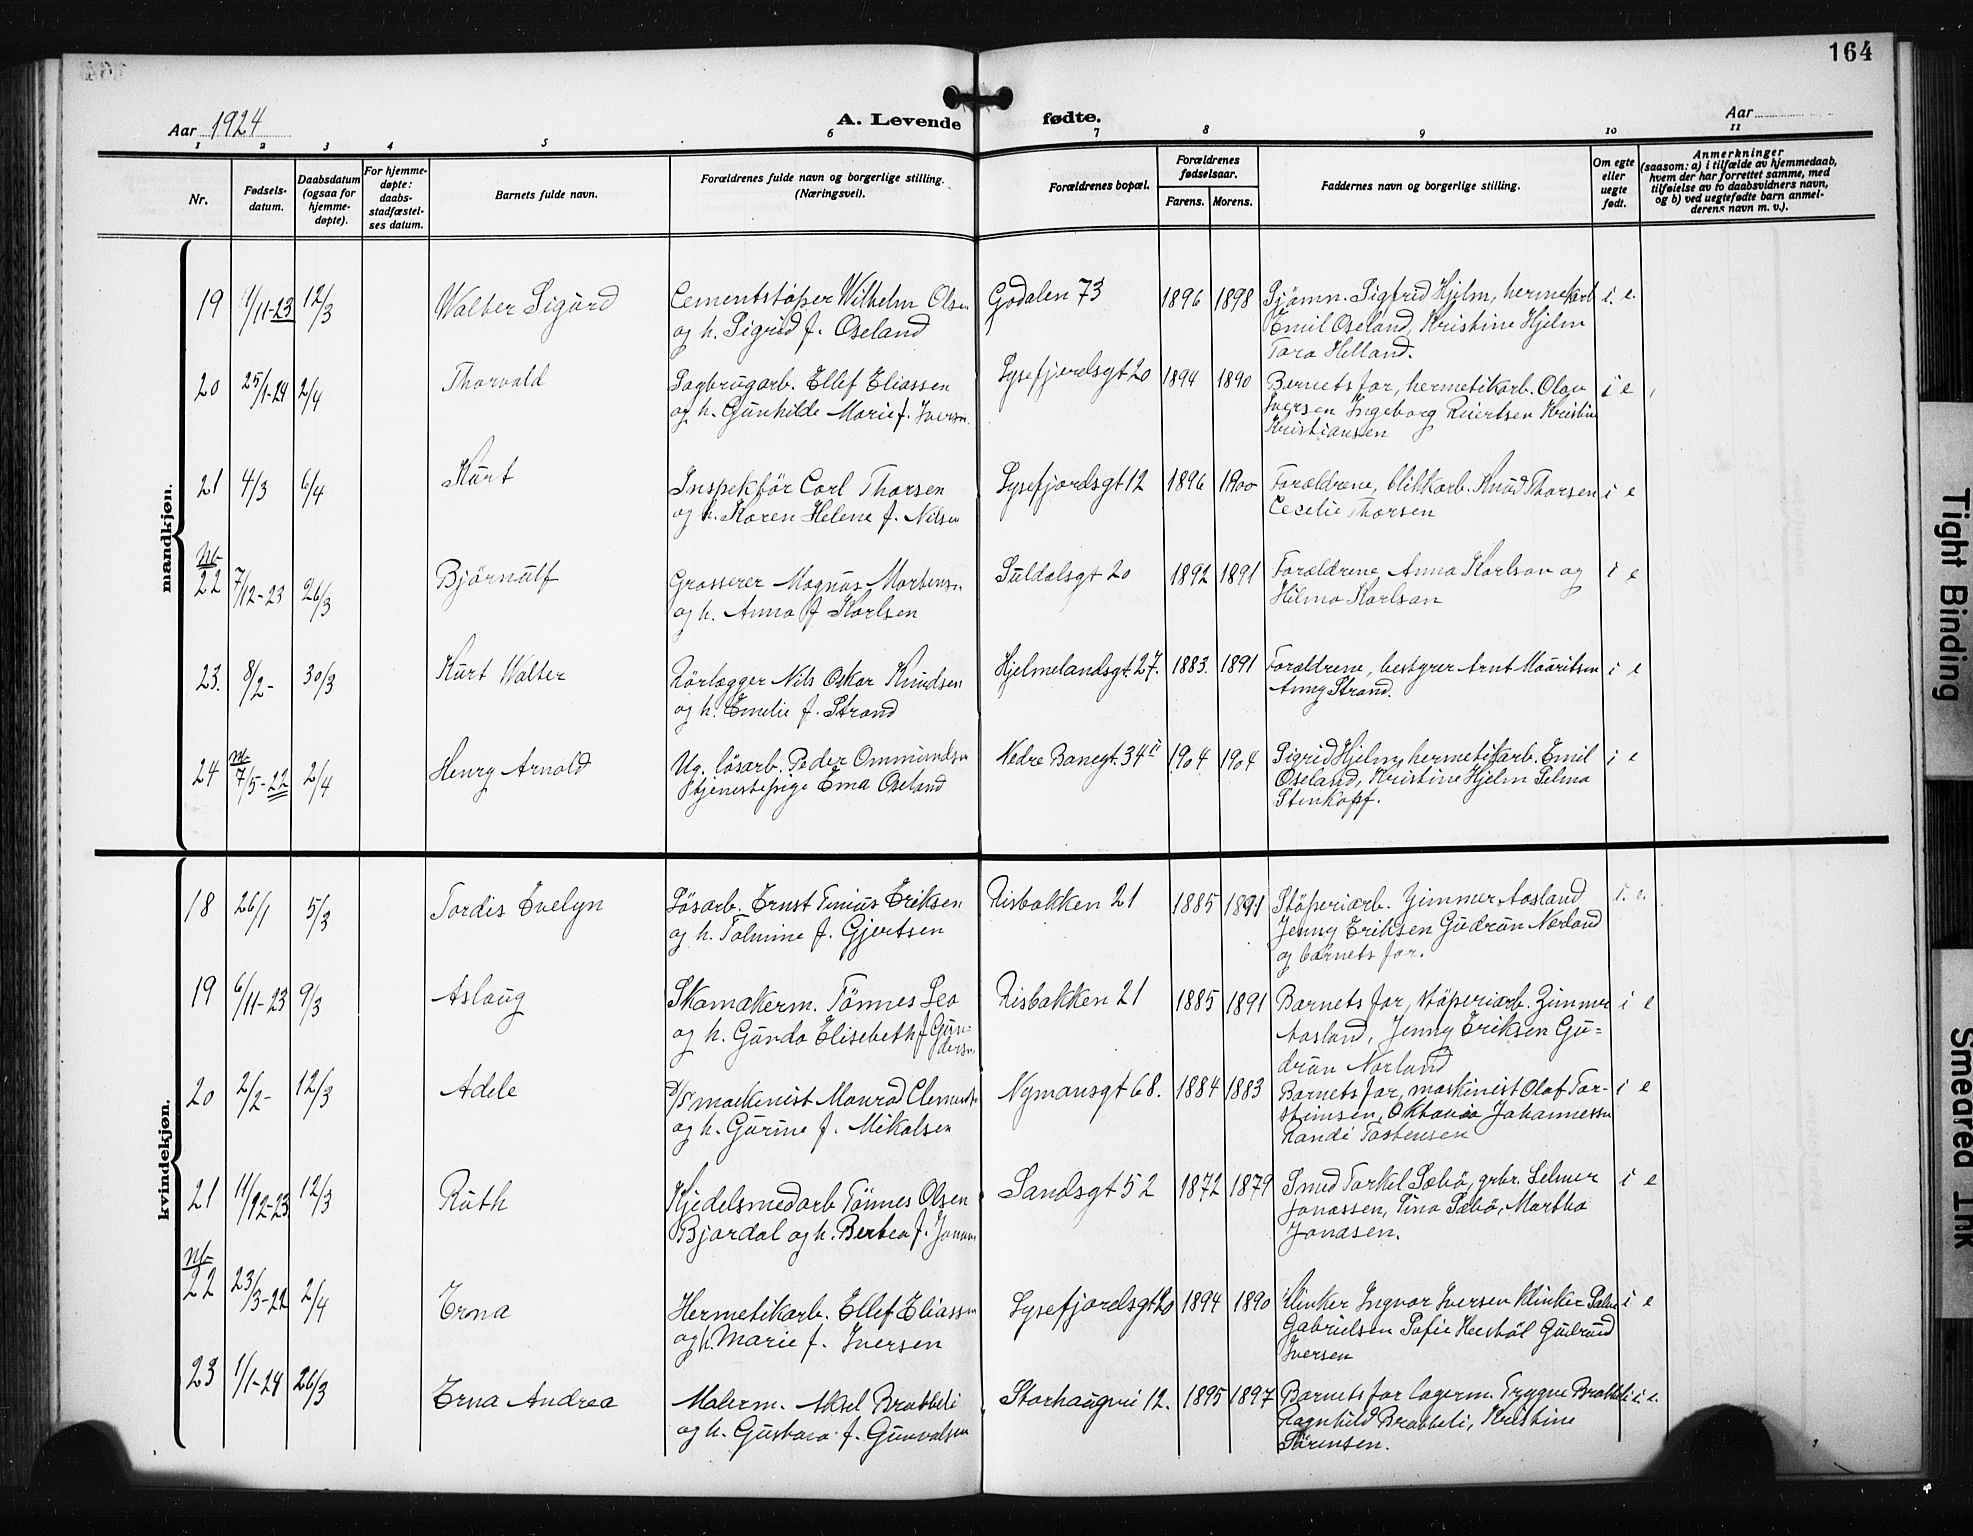 164
Aar 1924
A. Levende fødte.
Aar
1 2 3 4 5 6 7 8 9 10 11
Nr.
Fødsels-
datum.
Daabsdatum
(ogsaa for
hjemme-
døpte).
For hjemme-
døpte:
daabs-
stadfæstel-
ses datum.
Barnets fulde navn.
Forældrenes fulde navn og borgerlige stilling.
(Næringsvei).
Forældrenes bopæl.
Forældrenes
fødselsaar.
Farens. Morens.
Faddernes navn og borgerlige stilling.
Om egte
eller
uegte
født.
Anmerkninger
(saasom: a) i tilfælde av hjemmedaab,
hvem der har forrettet samme, med
tilføielse av to daabsvidners navn,
og b) ved uegtefødte barn anmel-
derens navn m. v.).
mandkjøn.
19 1/11-23 12/3 Walter Sigurd Cementstøper Wilhelm Olsen Godalen 73 1896 1898 Sjømn. Sigfrid Hjelm, hermetikarb i. e.
og h. Sigrid f. Oseland Emil Oseland, Kristine Hjelm
Tora Helland.
20 25/1-24 2/4 Thorvald Sagbrugarb. Ellef Eliassen Lysefjordsgt 20 1894 1890 Barnets far, hermetikarb. Olav i e
og h. Gunhilde Marie f. Iversen Iversen Ingeborg Reiertsen Kristine
Kristiansen
21 4/3 6/4 Kurt Inspektør Carl Thorsen Lysefjordsgt 12 1896 1900 Forældrene, blikkarb. Knud Thorsen i e
og h. Karen Helene f. Nilsen Cecilie Thorsen
nt-
22 7/12-23 26/3 Bjørnulf Grosserer Magnus Mortensen Suldalsgt 20 1892 1891 Forældrene Anna Karlson og i e
og h. Anna f Karlsen Hilma Karlson
23. 8/2- 30/3 Kurt Walter Rørlægger Nils Oskar Knudsen Hjelmelandsgt. 27. 1883. 1891 Forældrene, bestyrer Arnt Mauritsen i e
og h. Emelie f. Strand Anny Strand.
24 7/5-22 2/4 Henry Arnold Ug. løsarb. Peder Ommundsen Nedre Banegt. 34 II 1904 1904 Sigrid Hjelm, hermetikarb. Emil i e
Tjenestepige Ema Oseland Oseland, Kristine Hjelm Selma
Stenkopf.
kvindekjøn.
18 26/1 5/3 Tordis Evelyn Løsarb. Ernst Tinius Eriksen Risbakken 21 1885 1891 Støperiarb. Zimmer Aasland i. e.
og h. Talmine f. Gjertsen Jenny Eriksen Gudrun Norland
og barnets far.
19 6/11-23 9/3 Aslaug Skomakerm. Tønnes Leo Risbakken 21 1885 1891 Barnets far, støperiarb. Zimmer i e
og h. Gunda Elisebeth f Gun-
dersen Aasland, Jenny Eriksen Gu-
drun Norland
20 2/2- 12/3 Adele D/S maskinist Monrad Clementsen Nymansgt 68. 1884 1883 Barnets far, maskinist Olaf Tor- i e
og h. Gurine f. Mikalsen steinsen, Oktavia Johannessen
Randi Tostensen
21 11/12-23 12/3 Ruth Kjedelsmedarb Tønnes Olsen Sandsgt 52 1872 1879 Smed Torkel Sæbø, grbr. Selmer i e
Bjordal og h. Bertea f. Jonassen Jonassen, Tina Sæbø, Martha
Jonasen.
nt-
22 23/3-22 2/4 Erna Hermetikarb. Ellef Eliassen Lysefjordsgt 20 1894 1890 Klinker Ingvar Iversen klinker i e
og h. Marie f. Iversen Gabrielsen Sofie Gudrund
Iversen
23 1/1-24 26/3 Erna Andrea Malerm. Aksel Bratteli Storhaugvei 12. 1895 1897 Barnets far lagerm. Trygve Bratteli i. e.
og h. Gustava f. Gunvalsen Ragnhild Bratteli, Kristine
Sørensen.
Tight Binding
Smeared Ink